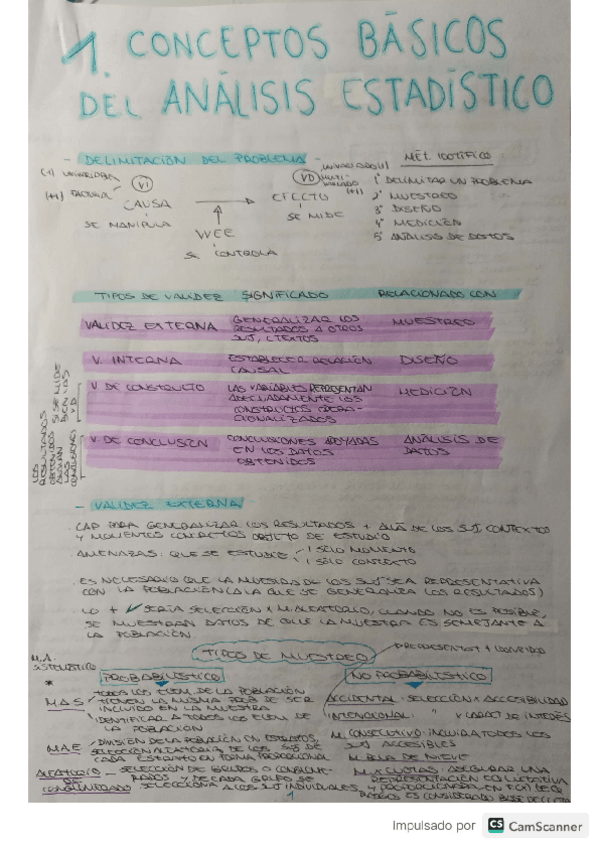 1. CONCEPTOS BÁSICOS
DEL ANÁLISIS ESTADÍSTICO
- DELIMITACIÓN DEL PROBLEMA -
MÉT. CIENTÍFICO
VI
VD
CAUSA → EFECTO
SE MANIPULA
SE MIDE
VVEE
SE CONTROLA
1º DELIMITAR UN PROBLEMA
2º MUESTREO
3º DISEÑO
4º MEDICIÓN
5º ANÁLISIS DE DATOS
TIPOS DE VALIDEZ SIGNIFICADO RELACIONADO CON
VALIDEZ EXTERNA GENERALIZAR LOS RESULTADOS A OTROS SUJ, CTEXTOS MUESTREO
V. INTERNA ESTABLECER RELACIÓN CAUSAL DISEÑO
V DE CONSTRUCTO LAS VARIABLES REPRESENTAN ADECUADAMENTE LOS CONSTRUCTOS OPERACIONALIZADOS MEDICIÓN
V. DE CONCLUSIÓN CONCLUSIONES APOYADAS EN LOS DATOS OBTENIDOS ANÁLISIS DE DATOS
SI SE MIDE BIEN LAS VD
LOS RESULTADOS OBTENIDOS APOYAN LAS CONCLUSIONES
- VALIDEZ EXTERNA -
· CAP PARA GENERALIZAR LOS RESULTADOS + ALLÁ DE LOS SUJ, CONTEXTOS
Y MOMENTOS CONCRETOS OBJETO DE ESTUDIO
· AMENAZAS: QUE SE ESTUDIE 1 SOLO MOMENTO
1 SOLO CONTEXTO
· ES NECESARIO QUE LA MUESTRA DE LOS SUJ SEA REPRESENTATIVA
CON LA POBLACIÓN (A LA QUE SE GENERALIZA LOS RESULTADOS)
· LO + ✓ SERÍA SELECCIÓN X M. ALEATORIO, CUANDO NO ES POSIBLE,
SE MUESTRAN DATOS DE QUE LA MUESTRA ES SEMEJANTE A
LA POBLACIÓN
TIPOS DE MUESTREO
M.A. SISTEMÁTICO
*
PROBABILÍSTICO
NO PROBABILÍSTICO
MAS
TODOS LOS ELEM. DE LA POBLACIÓN
TIENEN LA MISMA PROB DE SER
INCLUIDO EN LA MUESTRA
IDENTIFICAR A TODOS LOS ELEM DE
LA POBLACIÓN
MAE
DIVISIÓN DE LA POBLACIÓN EN ESTRATOS,
SELECCIÓN ALEATORIA DE LOS SUJ DE
CADA ESTRATO EN FORMA PROPORCIONAL
ALEATORIO DE CONGLOMERADO
SELECCIÓN DE GRUPOS O CONGLOMERADOS Y DE CADA GRUPO SE
SELECCIONA A LOS SUJ INDIVIDUALES
ACCIDENTAL: SELECCIÓN X ACCESIBILIDAD
INTENCIONAL: " X CARACT DE INTERÉS
M. CONSECUTIVO: INCLUIR A TODOS LOS
SUJ ACCESIBLES
M. BOLA DE NIEVE
M. X CUOTAS: ASEGURAR UNA
REPRESENTACIÓN
1
Impulsado por CS CamScanner